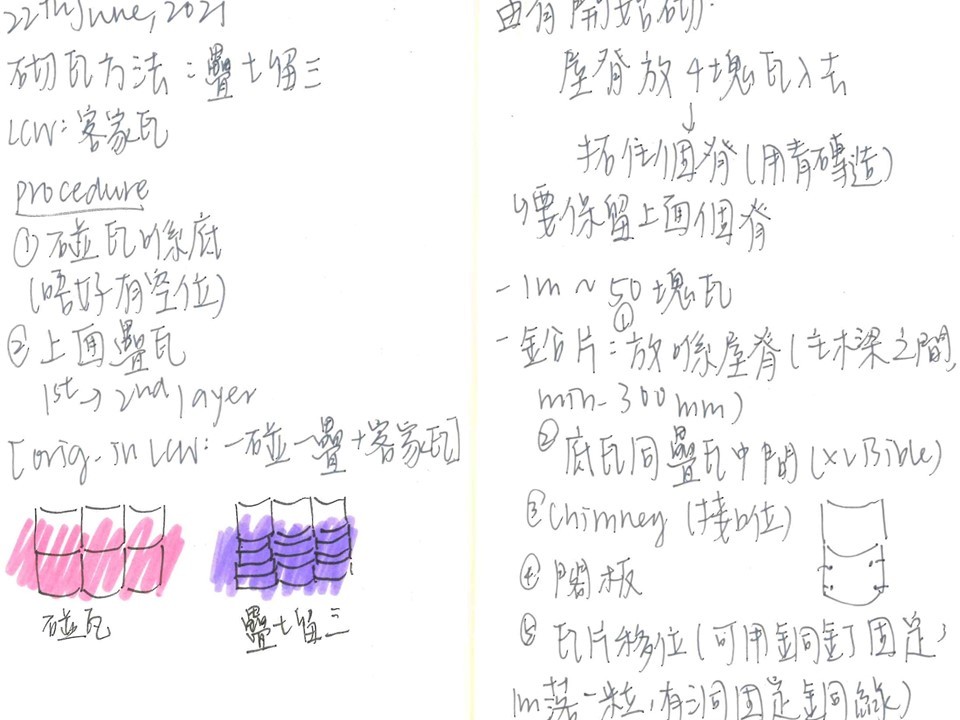 22th June, 2021
砌瓦方法：疊七留三
LCW: 客家瓦
procedure
① 碰瓦喺底
(唔好有空位)
② 上面疊瓦
1st → 2nd layer
[orig. in LCW: 一碰一疊+客家瓦]
碰瓦
疊七留三
由脊開始砌.
屋脊放4塊瓦入去
↓
托住個脊(用青磚造)
↳要保留上面個脊
- 1m ~ 50塊瓦
- 鉛片：①放喺屋脊(主木梁之間,
min- 300mm)
② 底瓦同疊瓦中間 (
③ Chimney (接口位)
④ 閣板
⑤ 瓦片移位(可用銅釘固定,
1m落一粒,有洞固定銅線)